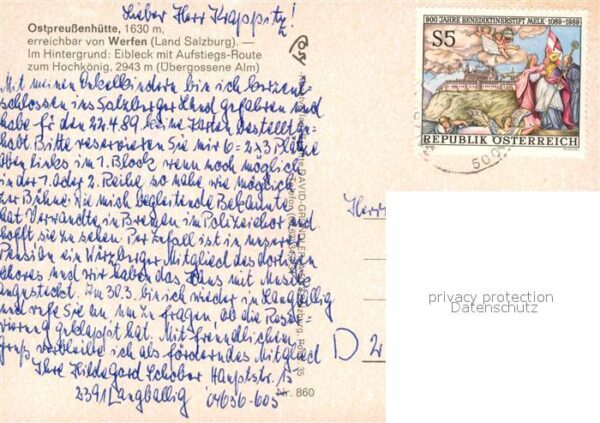 Lieber Herr Krappatz!
Ostpreußenhütte, 1630 m,
erreichbar von Werfen (Land Salzburg). —
Im Hintergrund: Eibleck mit Aufstiegs-Route
zum Hochkönig, 2943 m (Übergossene Alm)
Mit meinen Enkelkindern bin ich kurzent-
schlossen ins Salzburger Land gefahren und
habe für den 22.4.89 keine Karten bestellt ge-
habt. Bitte reservieren Sie mir 6 - 2x3 Plätze
oben links im 1. Block wenn noch möglich
in der 1. oder 2. Reihe so nahe wie möglich
zur Bühne. Die mich begleitende Bekannte
hat Verwandte in Bremen im Polizeichor und
hofft sie zu sehen. Per Zufall ist in unserer
Pension ein Würzburger Mitglied des dortigen
Chores und wir haben das Haus mit Musik
angesteckt. Am 30.3. bin ich wieder in Langballig
und rufe Sie an um zu fragen ob die Reser-
vierung geklappt hat. Mit freundlichem
Gruß verbleibe ich als förderndes Mitglied
Ihre Hildegard Schober Hauptstr. 15
2391 Langballig 04636-605
Nr. 860
900 JAHRE BENEDIKTINERSTIFT MELK 1089-1989
S5
REPUBLIK ÖSTERREICH
500
Herr
D 2
privacy protection
Datenschutz